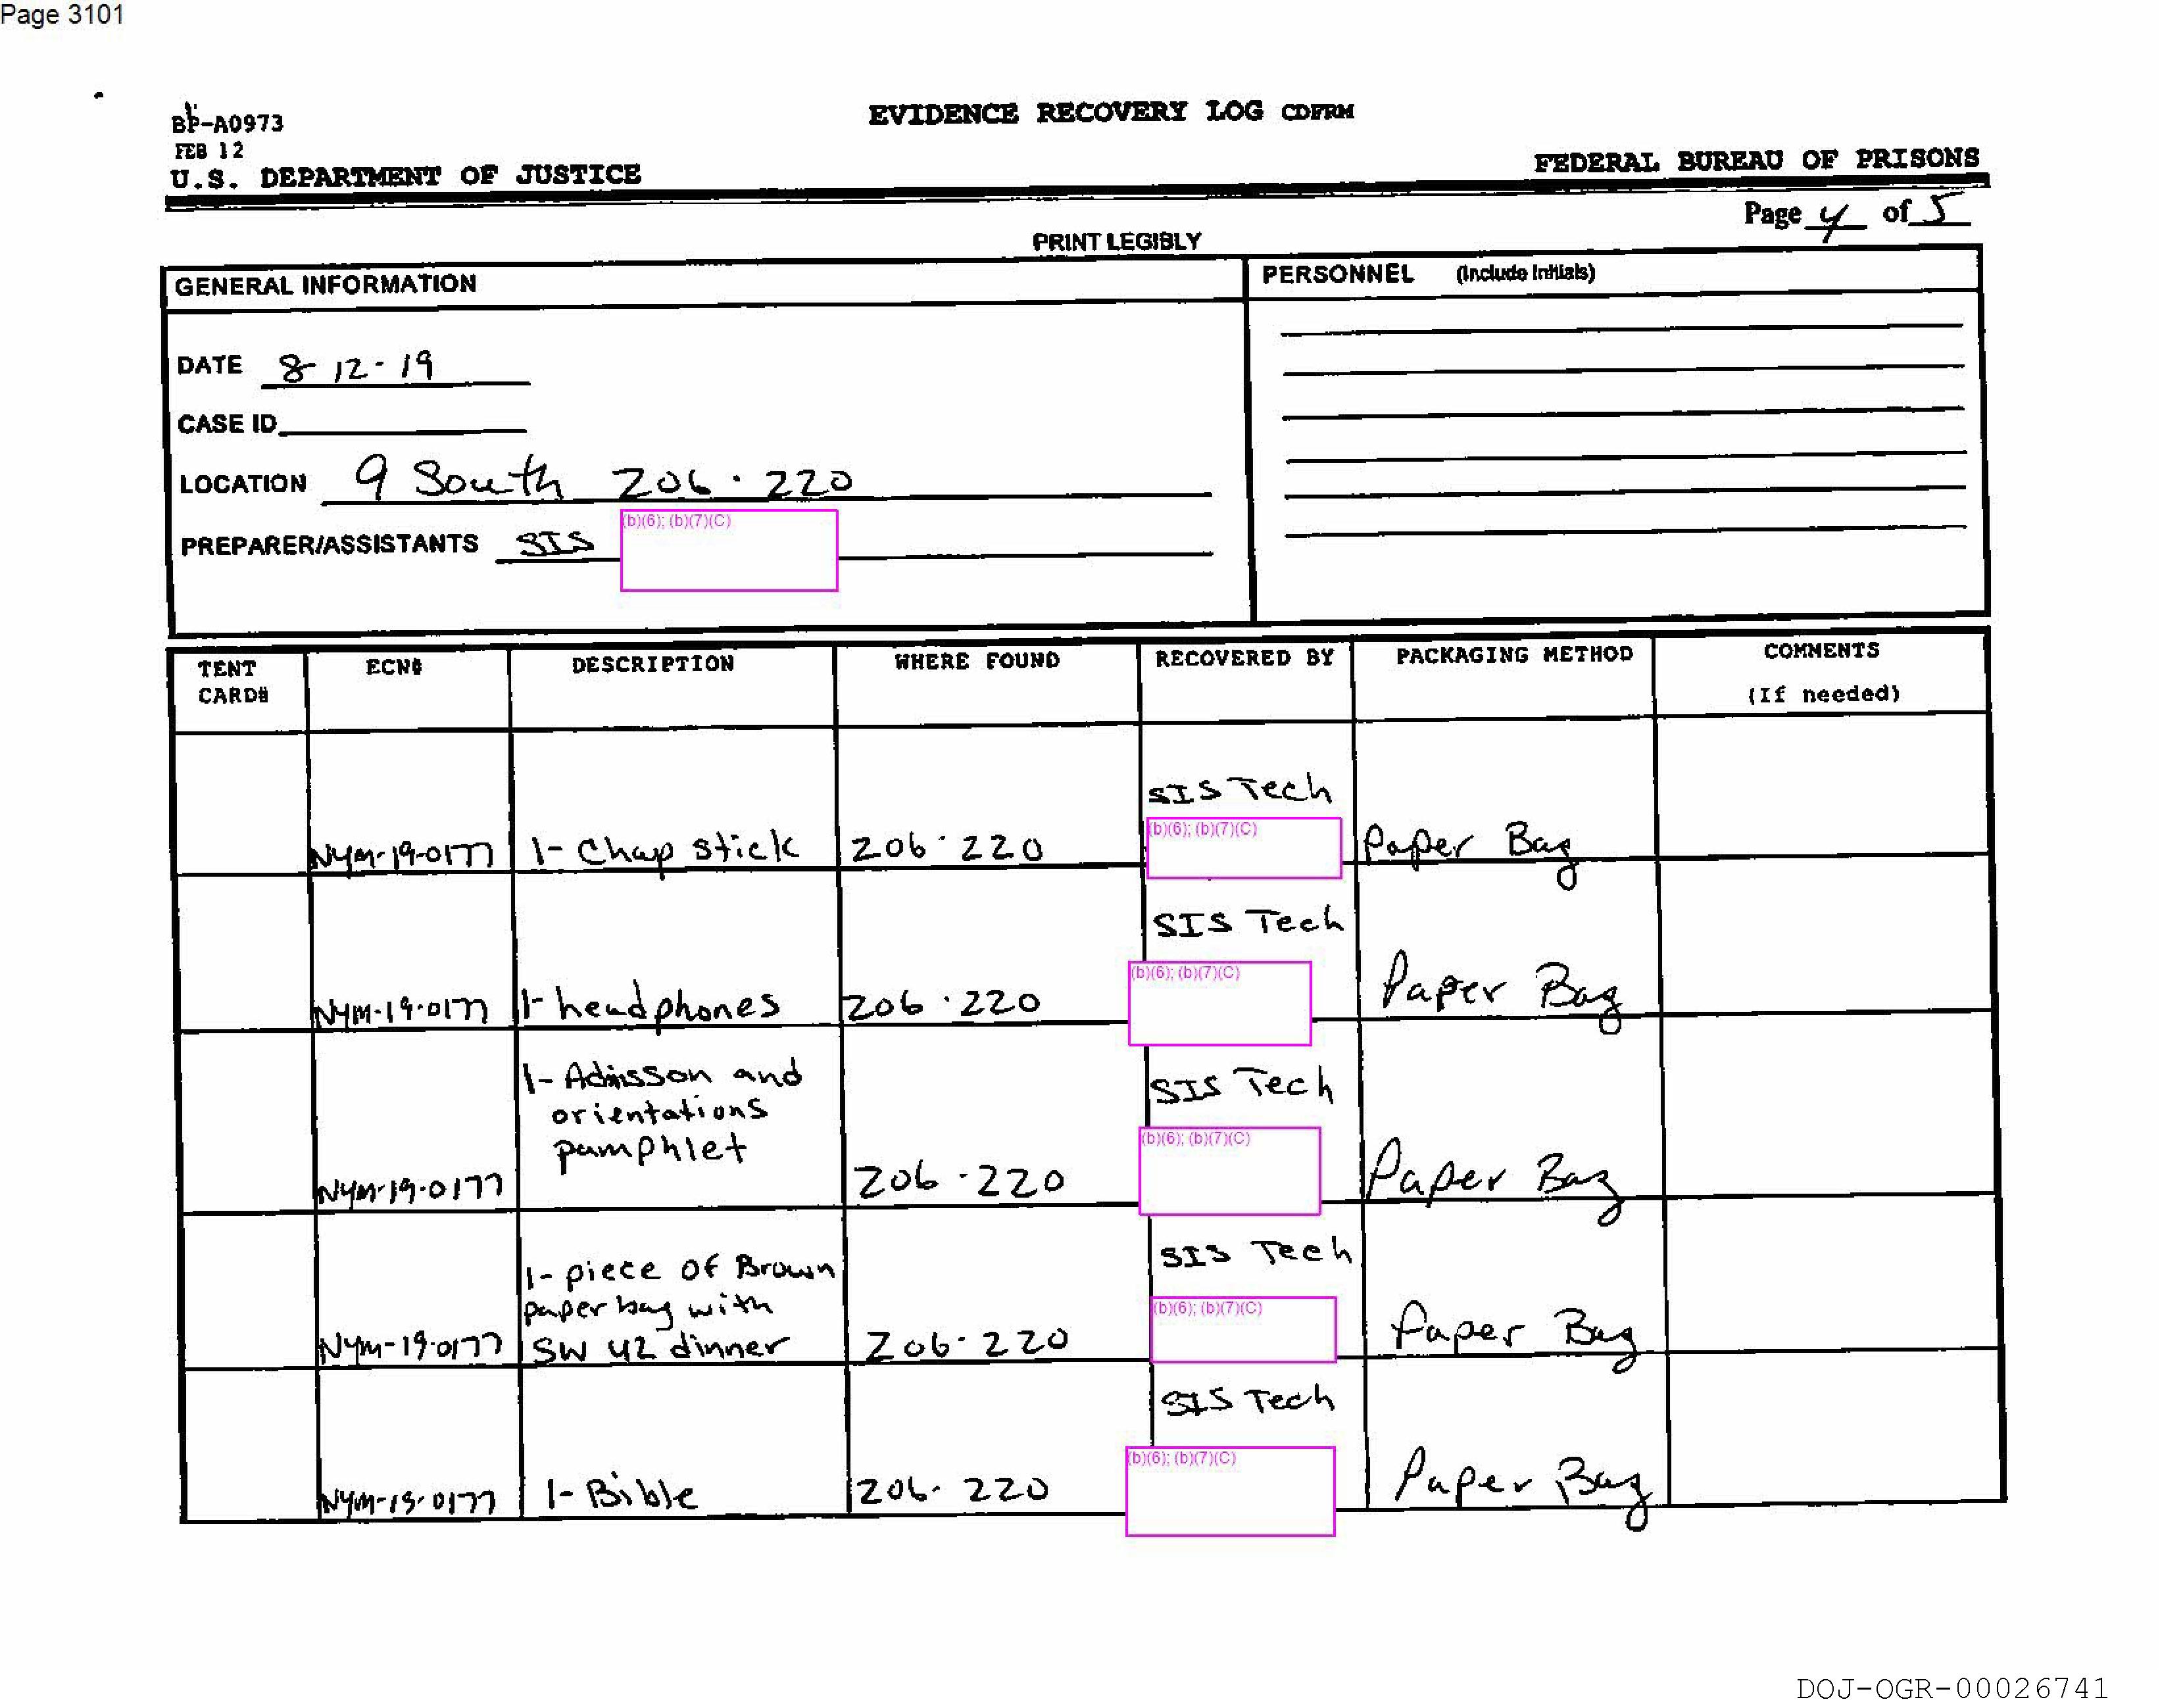 Page 3101
BP-A0973
EVIDENCE RECOVERY LOG CDFRM
FEB 12
U.S. DEPARTMENT OF JUSTICE
FEDERAL BUREAU OF PRISONS
Page 4 of 5
PRINT LEGIBLY
GENERAL INFORMATION
PERSONNEL (Include Initials)
DATE 8-12-19
CASE ID
LOCATION 9 South 206-220
PREPARER/ASSISTANTS SIS (b)(6); (b)(7)(C)
TENT CARD# ECN# DESCRIPTION WHERE FOUND RECOVERED BY PACKAGING METHOD COMMENTS (If needed)
SIS Tech
NYM-19-0177 1- Chap stick 206-220 (b)(6); (b)(7)(C) Paper Bag
SIS Tech
NYM-19-0177 1- headphones 206-220 (b)(6); (b)(7)(C) Paper Bag
1- Admisson and
orientations
pamphlet
SIS Tech
NYM-19-0177 206-220 (b)(6); (b)(7)(C) Paper Bag
SIS Tech
1- piece of Brown
paper bag with
NYM-19-0177 SW 42 dinner 206-220 (b)(6); (b)(7)(C) Paper Bag
SIS Tech
NYM-19-0177 1- Bible 206-220 (b)(6); (b)(7)(C) Paper Bag
DOJ-OGR-00026741